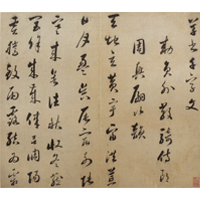 草書千字文
勅員外散騎侍郎
周興嗣次韻
天地玄黃宇宙洪荒
日月盈昃辰宿列張
寒來暑往秋收冬藏
閏餘成歲律呂調陽
雲騰致雨露結為霜